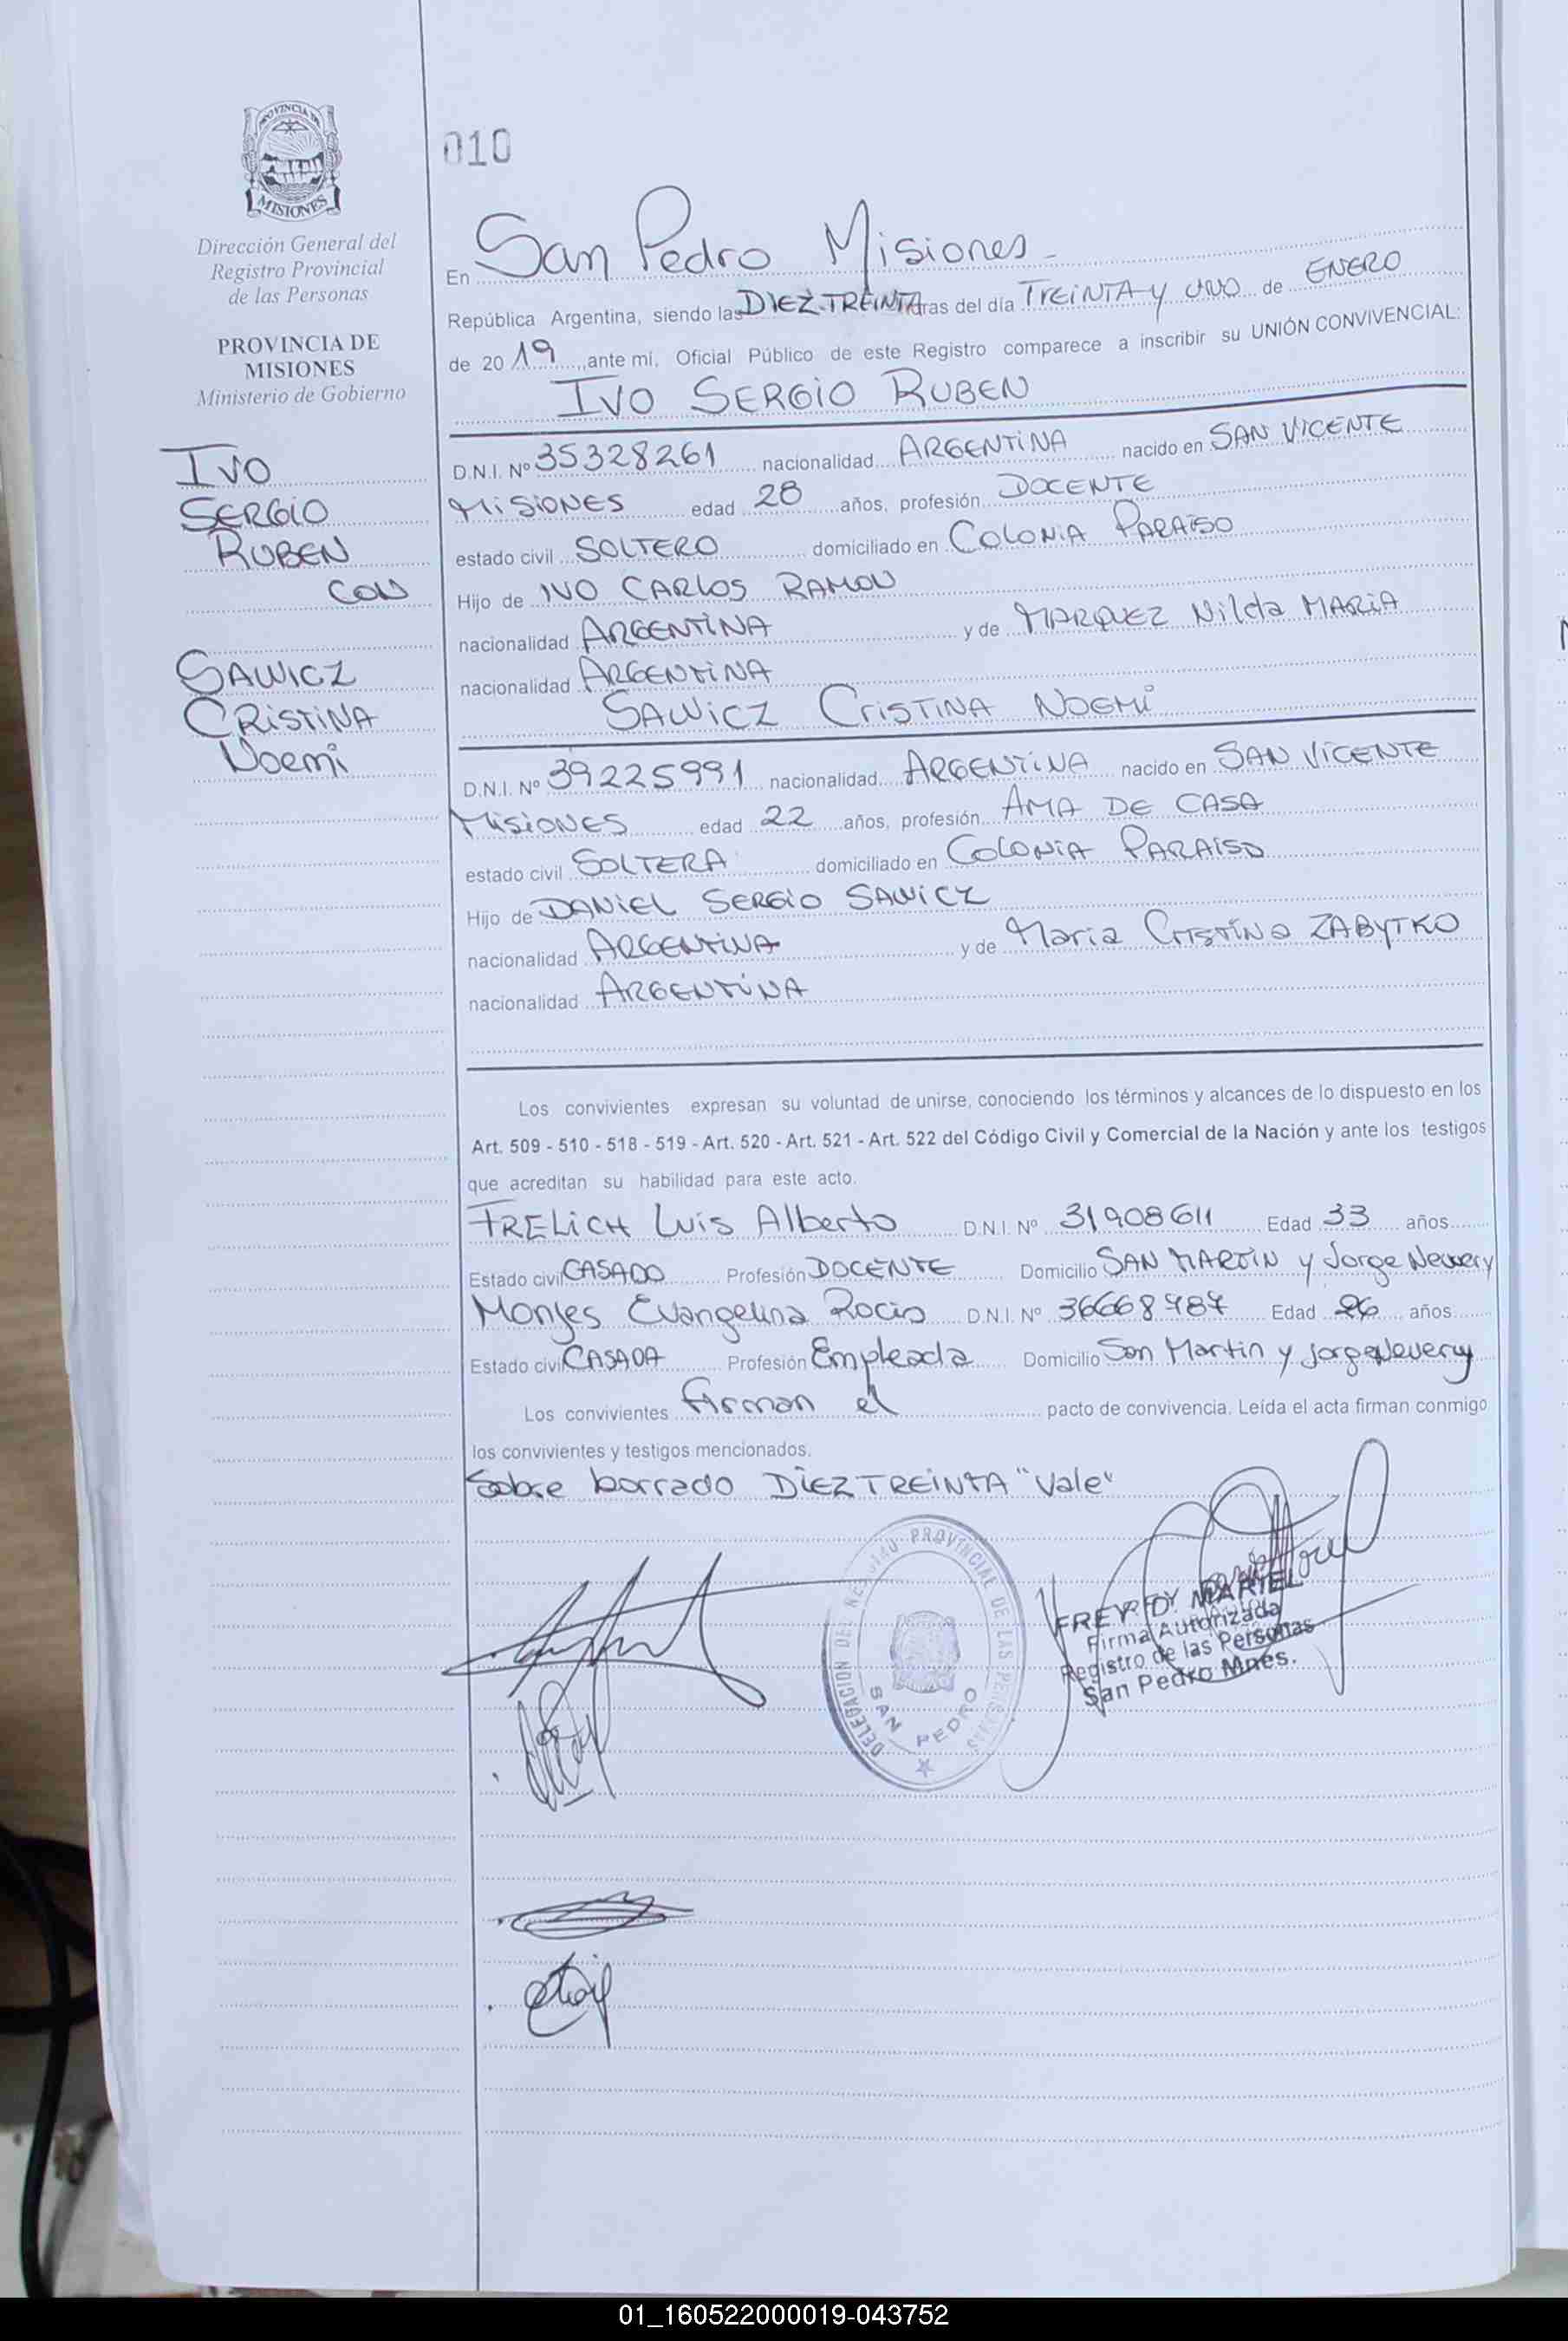 PROVINCIA DE
MISIONES
Dirección General del
Registro Provincial
de las Personas
PROVINCIA DE
MISIONES
Ministerio de Gobierno
Ivo
SERGIO
RUBEN
CON
SAWICZ
CRISTINA
Noemi
010
En San Pedro Misiones
República Argentina, siendo las DIEZ TREINTA ras del día TREINTA Y UNO de ENERO
de 2019, ante mi, Oficial Público de este Registro comparece a inscribir su UNIÓN CONVIVENCIAL:
IVO SERGIO RUBEN
D.N.I. Nº 35328261 nacionalidad ARGENTINA nacido en SAN VICENTE
MISIONES edad 28 años, profesión DOCENTE
estado civil SOLTERO domiciliado en COLONIA PARAISO
Hijo de IVO CARLOS RAMON
nacionalidad ARGENTINA y de MARQUEZ Nilda MARIA
nacionalidad ARGENTINA
SAWICZ CRISTINA NOEMI
D.N.I. Nº 39225991 nacionalidad ARGENTINA nacido en SAN VICENTE
MISIONES edad 22 años, profesión AMA DE CASA
estado civil SOLTERA domiciliado en COLONIA PARAISO
Hijo de DANIEL SERGIO SAWICZ
nacionalidad ARGENTINA y de Maria Cristina ZABYTKO
nacionalidad ARGENTINA
Los convivientes expresan su voluntad de unirse, conociendo los términos y alcances de lo dispuesto en los
Art. 509 - 510 - 518 - 519 - Art. 520 - Art. 521 - Art. 522 del Código Civil y Comercial de la Nación y ante los testigos
que acreditan su habilidad para este acto.
FRELICH Luis Alberto D.N.I. Nº 31908611 Edad 33 años
Estado civil CASADO Profesión DOCENTE Domicilio SAN MARTIN y Jorge Newery
Monjes Evangelina Rocio D.N.I. Nº Edad 26 años
Estado civil CASADA Profesión Empleada Domicilio San Martin y Jorge Nevery
Los convivientes firman el pacto de convivencia. Leída el acta firman conmigo
los convivientes y testigos mencionados.
Sobre borrado DIEZ TREINTA "Vale"
DELEGACION DEL REGISTRO PROVINCIAL DE LAS PERSONAS
SAN PEDRO
FREY D. MARIEL
Firma Autorizada
Registro de las Personas
San Pedro Mnes.
01_160522000019-043752